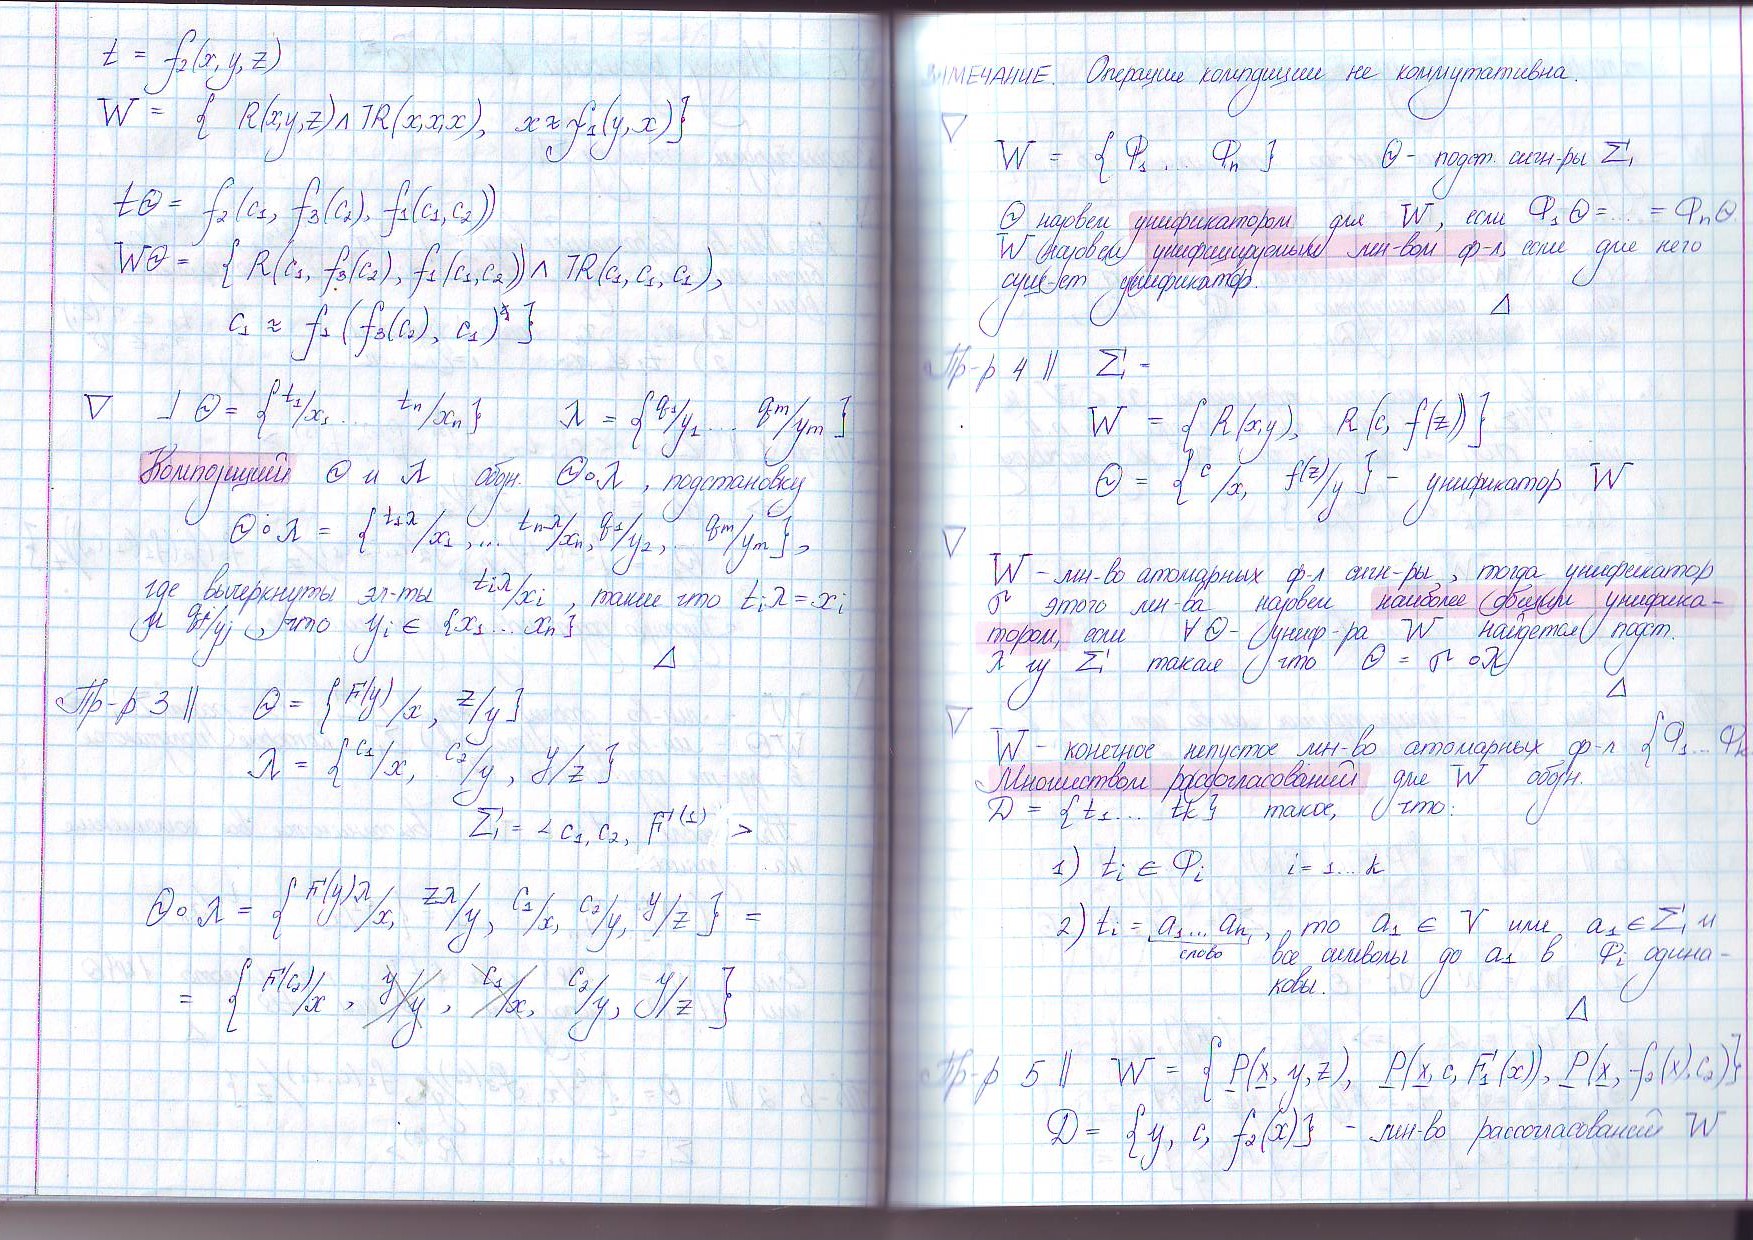 t = f₂(x, y, z)
W = { R(x,y,z) ∧ ⅂R(x,x,x), x ≈ f₁(y, x) }
tΘ = f₂(c₁, f₃(c₂), f₁(c₁,c₂))
WΘ = { R(c₁, f₃(c₂), f₁(c₁,c₂)) ∧ ⅂R(c₁, c₁, c₁),
c₁ ≈ f₁(f₃(c₂), c₁) }
▽ ⅃ Θ = {t₁/x₁ ... tn/xn} λ = {q₁/y₁ ... qm/ym}
Композицией Θ и λ обозн. Θ∘λ, подстановку
Θ∘λ = {t₁λ/x₁, ... tnλ/xn, q₁/y₂, .. qm/ym},
где вычеркнуты эл-ты tiλ/xi, такие что tiλ = xi
и qj/yj, что yi ∈ {x₁ ... xn}
△
Пр-р 3 || Θ = {F(y)/x, z/y}
λ = {c₁/x, c₂/y, y/z}
Σ = < c₁, c₂, F⁽¹⁾ >
Θ∘λ = {F(y)λ/x, zλ/y, c₁/x, c₂/y, y/z} =
= {F(c₂)/x, y/y, c₁/x, c₂/y, y/z}
ИМЕЧАНИЕ. Операция компдиции не коммутативна.
▽
W = {Φ₁ ... Φn} Θ - подст. сигн-ры Σ
Θ назовем унификатором для W, если Φ₁Θ = ... = ΦnΘ
W назовем унифицируемым мн-вом ф-л, если для него
сущ-ет унификатор.
△
Пр-р 4 || Σ -
W = {R(x,y), R(c, f(z))}
Θ = {c/x, f(z)/y} - унификатор W
▽
W - мн-во атомарных ф-л сигн-ры, тогда унификатор
σ этого мн-ва назовем наиболее общим унифика-
тором, если ∀ Θ - униф-ра W найдется подст.
λ Σ такая что Θ = σ∘λ
△
▽
W - конечное непустое мн-во атомарных ф-л {Φ₁ ... Φk
Множеством рассогласований для W обозн.
D = {t₁ ... tk} такое, что:
1) ti ∈ Φi i = 1 ... k
2) ti = a₁ ... an, то a₁ ∈ V или a₁ ∈ Σ и
слово все символы до a₁ в Φi одина-
ковы.
△
Пр-р 5 || W = {P(x, y, z), P(x, c, F₁(x)), P(x, f₂(x), c₂)}
D = {y, c, f₂(x)} - мн-во рассогласований W